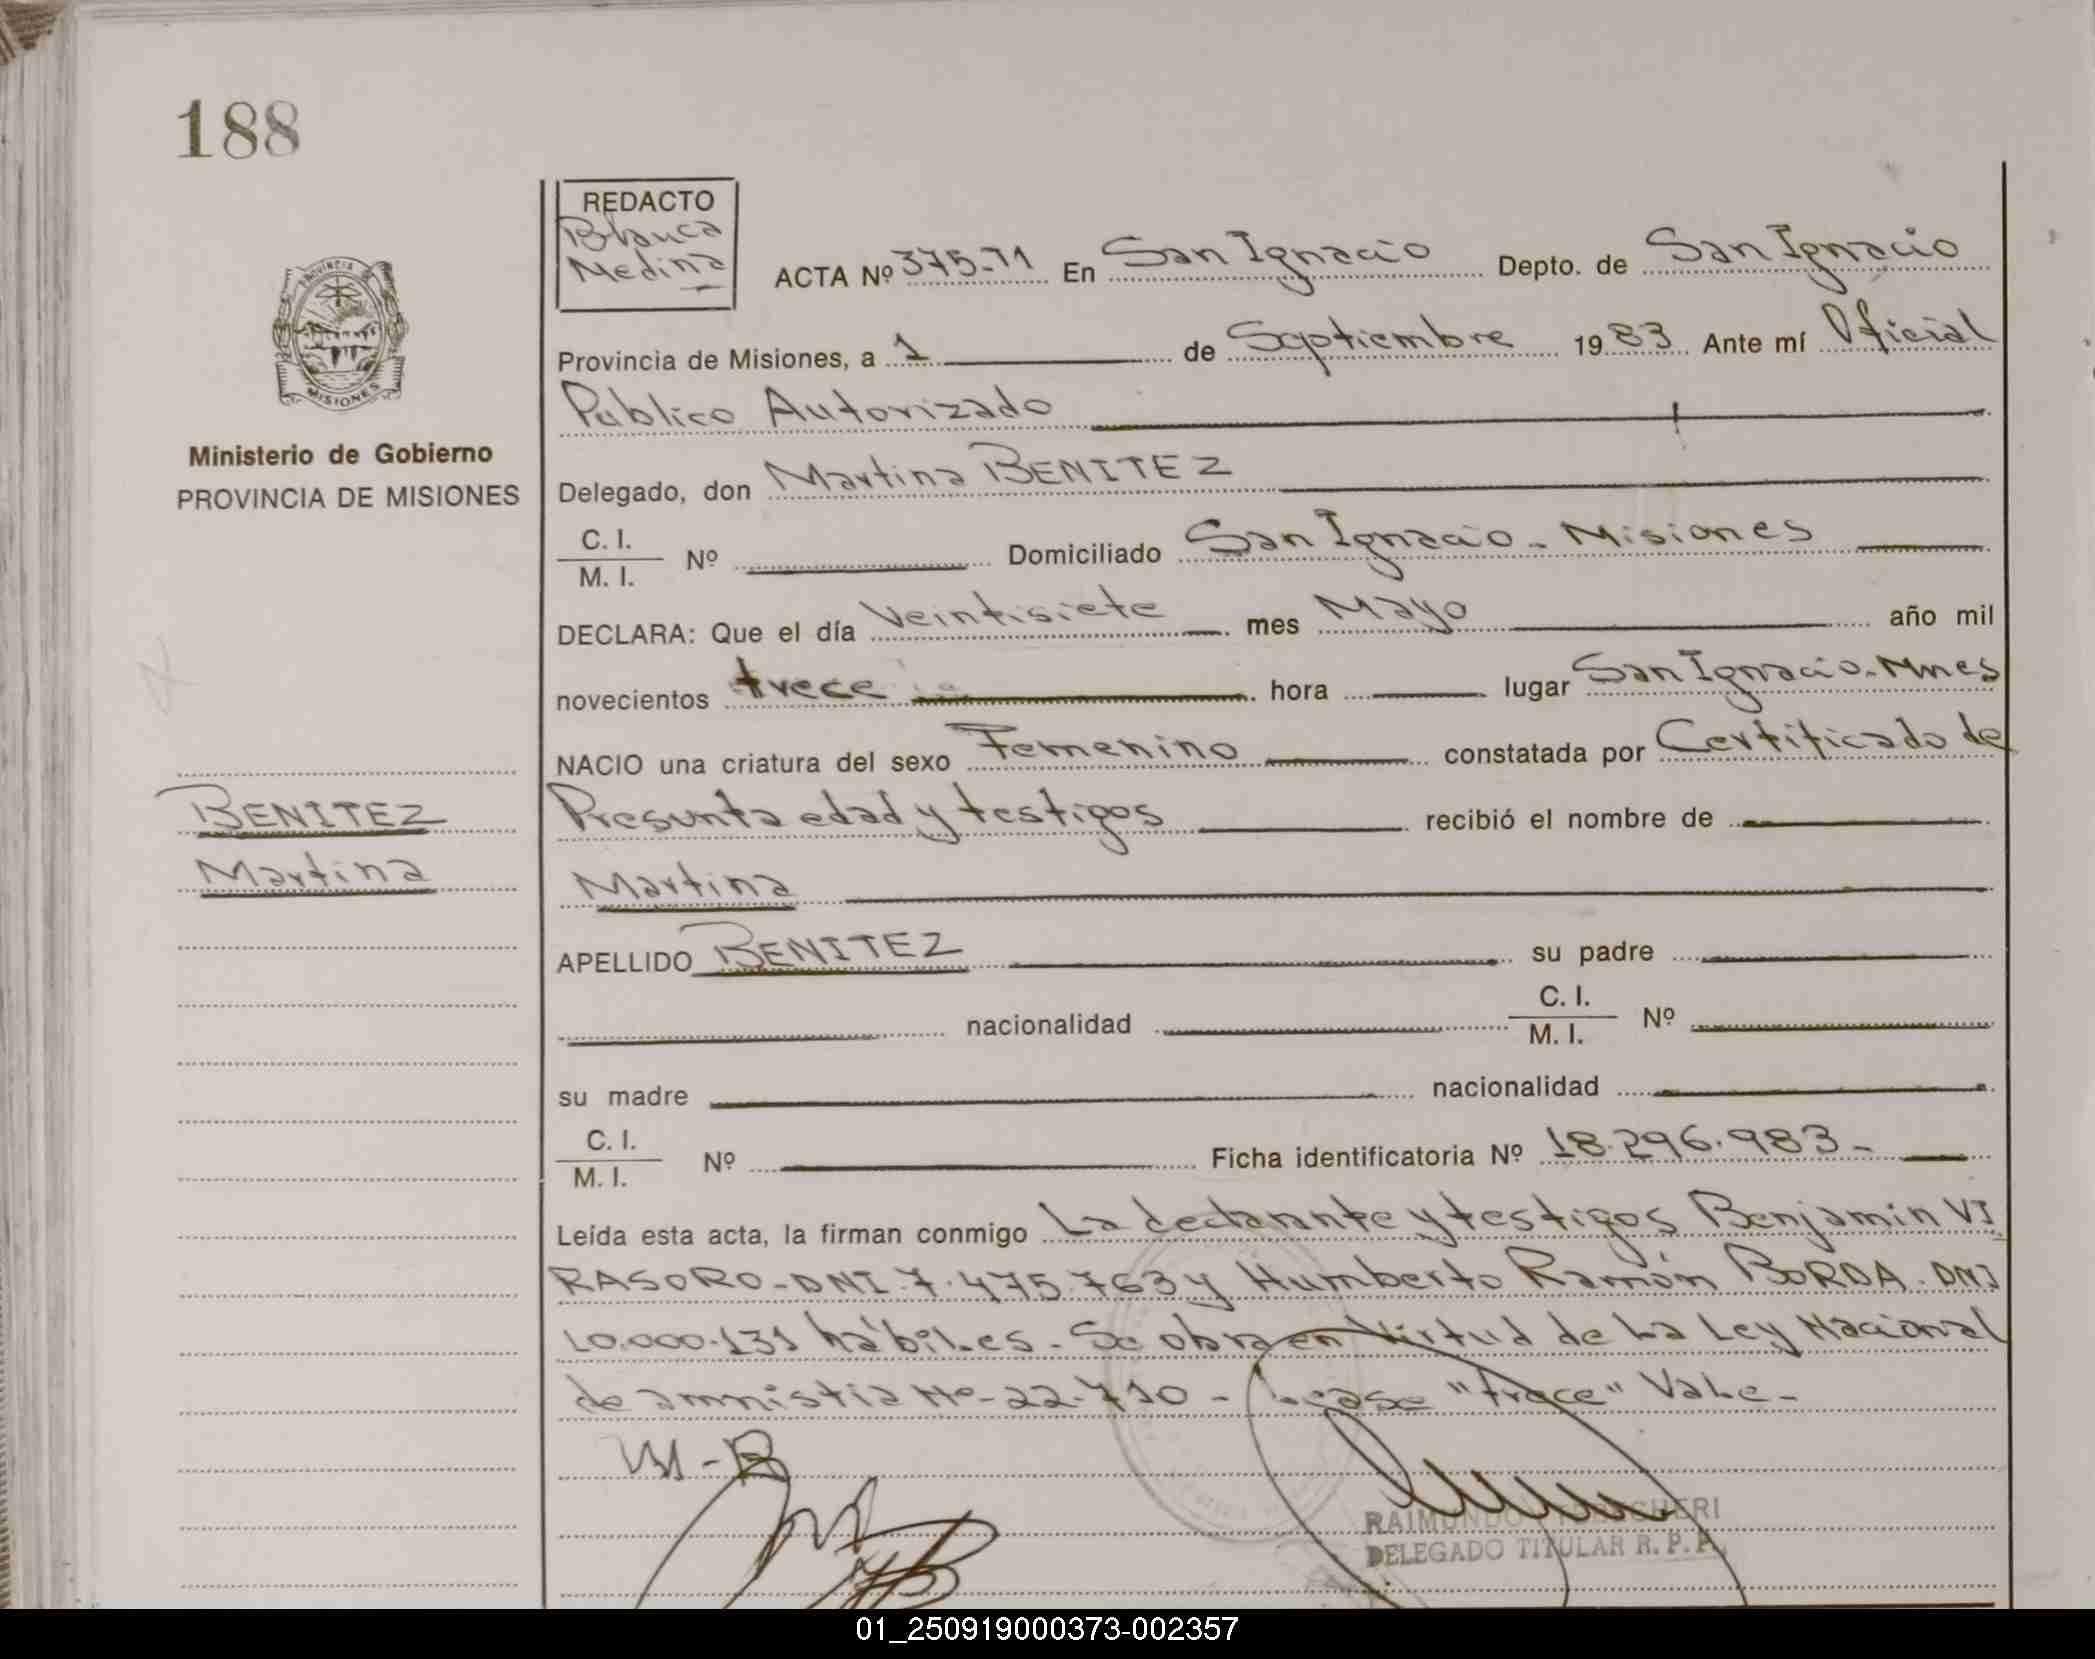 188
REDACTO
Blanca
Medina
ACTA Nº 375-71 En San Ignacio Depto. de San Ignacio
Provincia de Misiones, a 1 de Septiembre 1983 Ante mí Oficial
Publico Autorizado
PROVINCIA DE
MISIONES
Ministerio de Gobierno
PROVINCIA DE MISIONES
Delegado, don Martina BENITEZ
C. I.
M. I. Nº Domiciliado San Ignacio - Misiones
DECLARA: Que el día Veintisiete mes Mayo año mil
novecientos trece hora lugar San Ignacio. Mnes
NACIO una criatura del sexo Femenino constatada por Certificado de
BENITEZ
Martina
Presunta edad y testigos recibió el nombre de
Martina
APELLIDO BENITEZ su padre
nacionalidad C. I.
M. I. Nº
su madre nacionalidad
C. I.
M. I. Nº Ficha identificatoria Nº 18.296.983-
Leída esta acta, la firman conmigo La declarante y testigos Benjamín VI
RASORO-DNI.7.475.763 y Humberto Ramón BORDA. DNI
10.000.131 hábiles. Se obra en Virtud de La Ley Nacional
de amnistia Nº-22.710 - Lease "trece" Vale-
M-B
RAIMUNDO
DELEGADO TITULAR R. P. P.
01_250919000373-002357